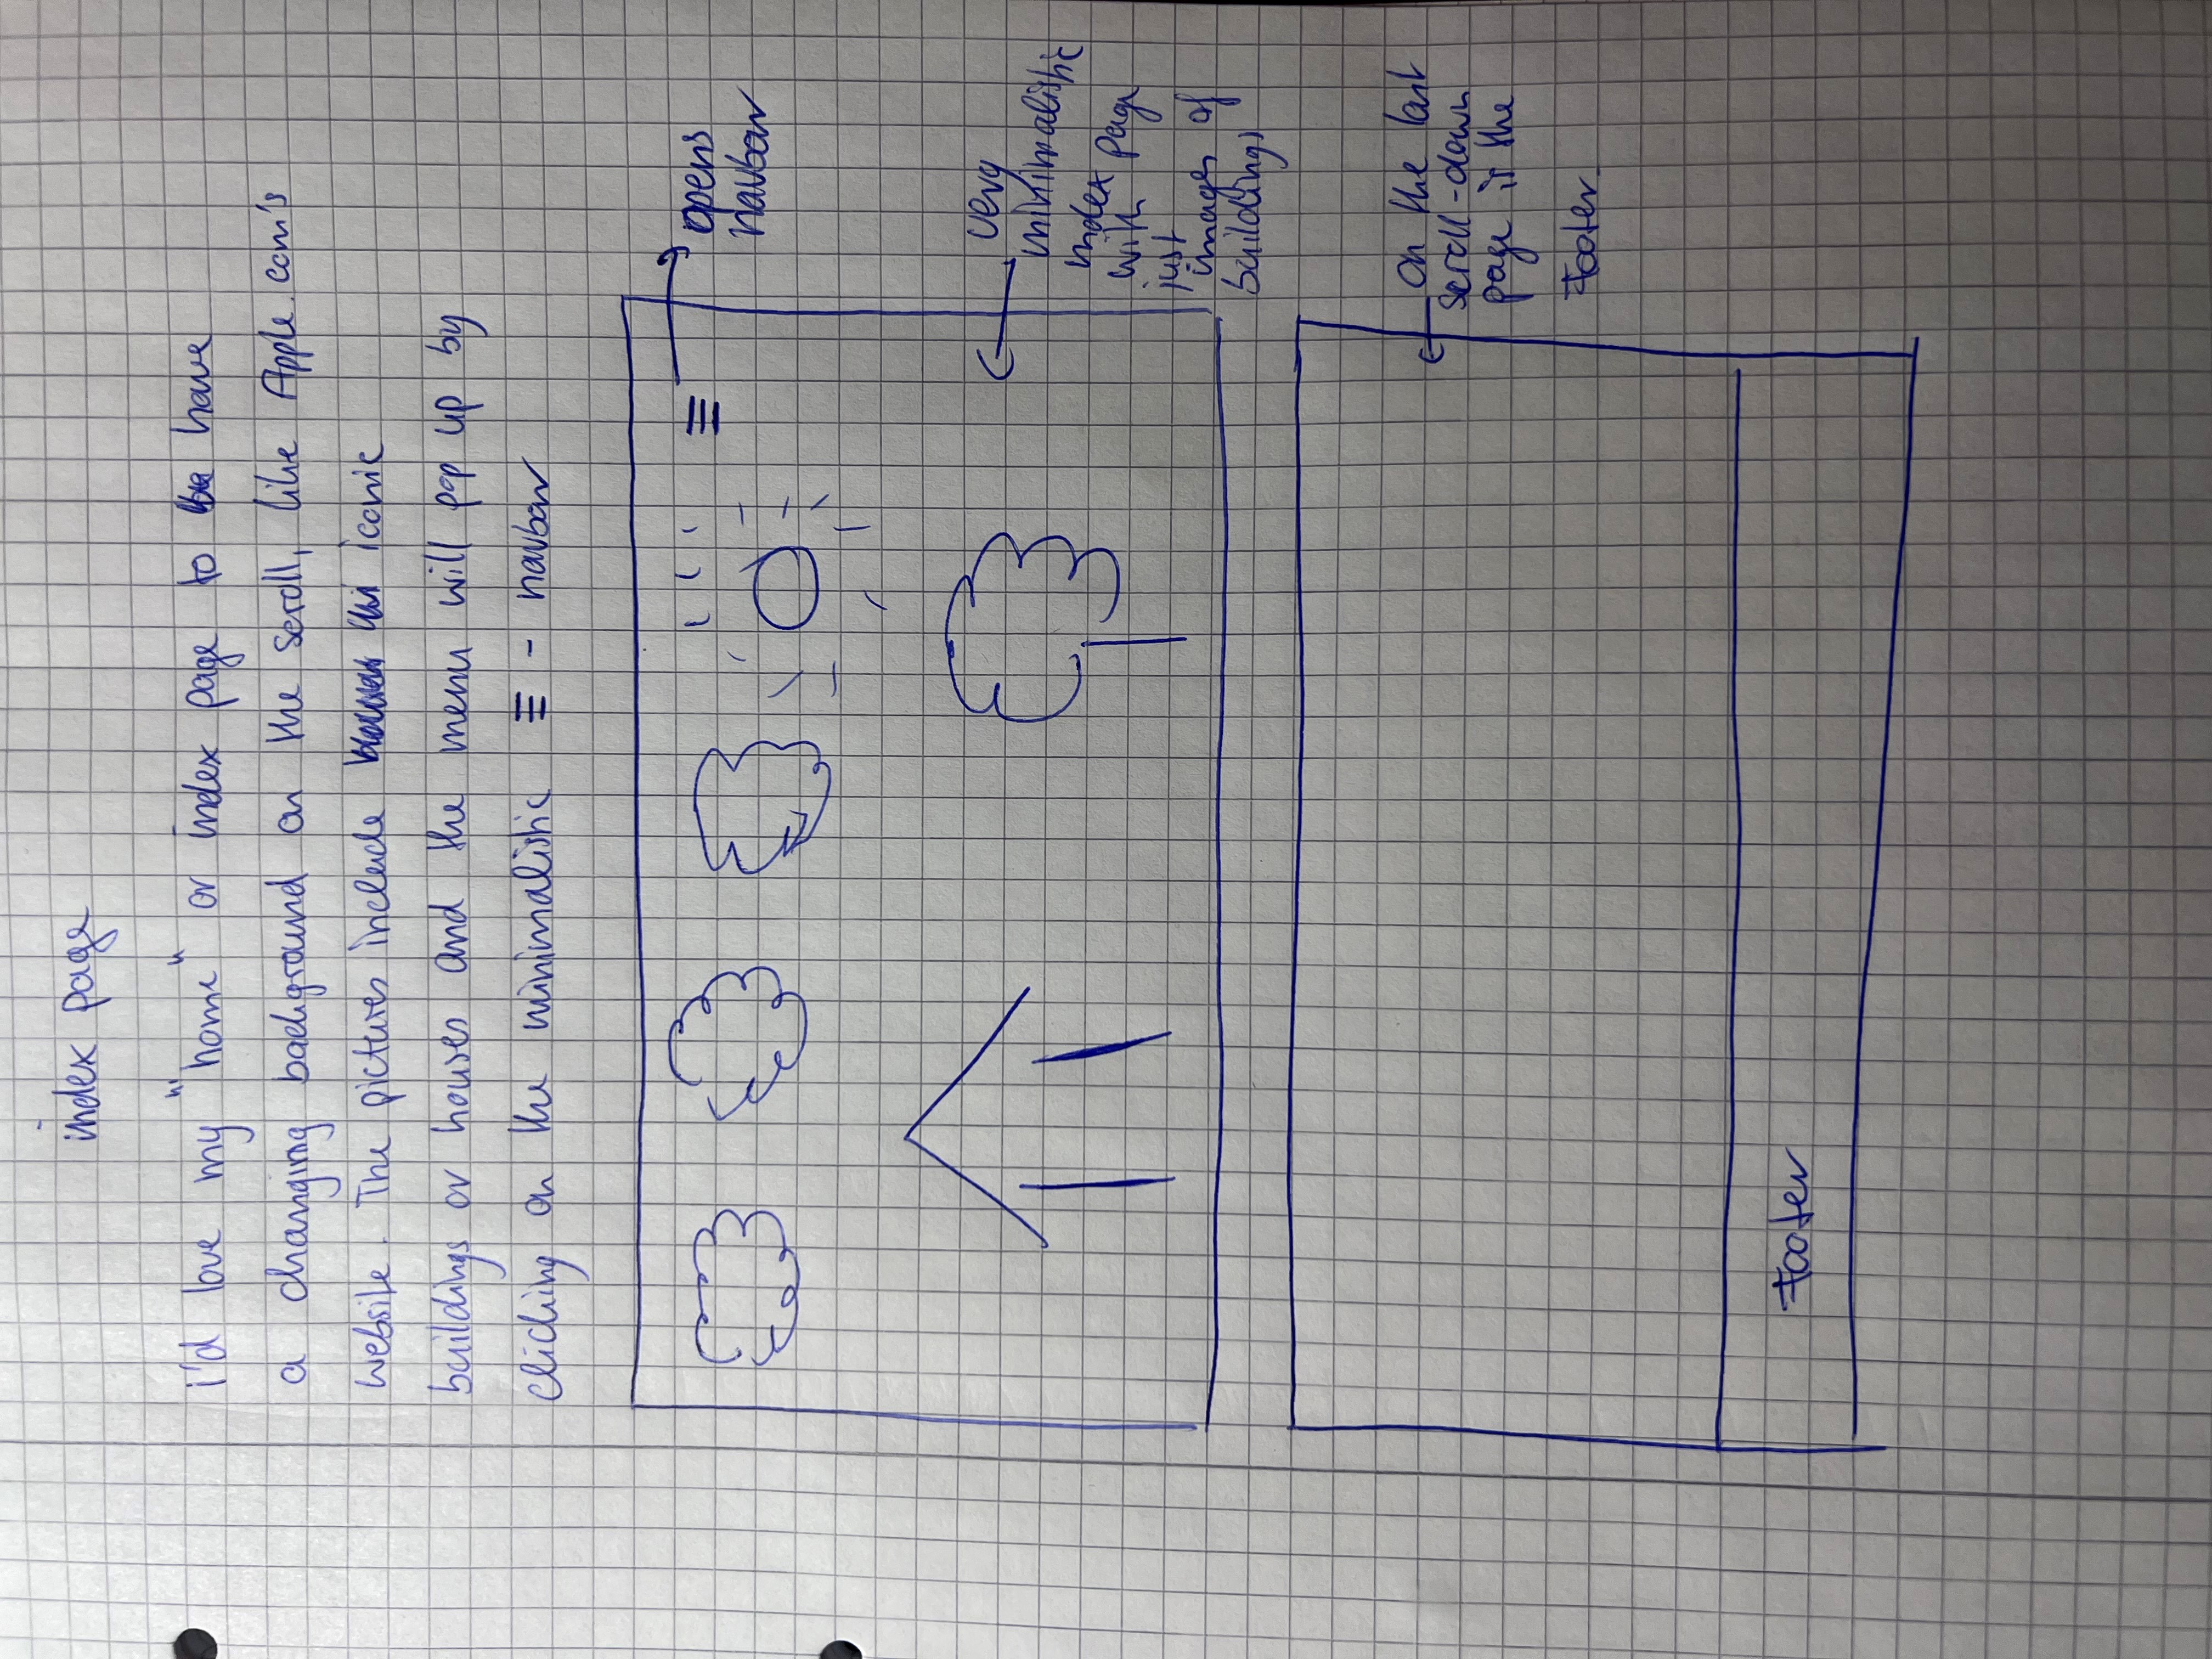 index page
i'd love my "home" or index page to have
a changing background on the scroll, like Apple.com's
website. The pictures include iconic
buildings or houses and the menu will pop up by
clicking on the minimalistic ≡ - navbar
≡
opens
navbar
very
minimalistic
index page
with
just
images of
buildings
on the last
scroll-down
page is the
footer
footer